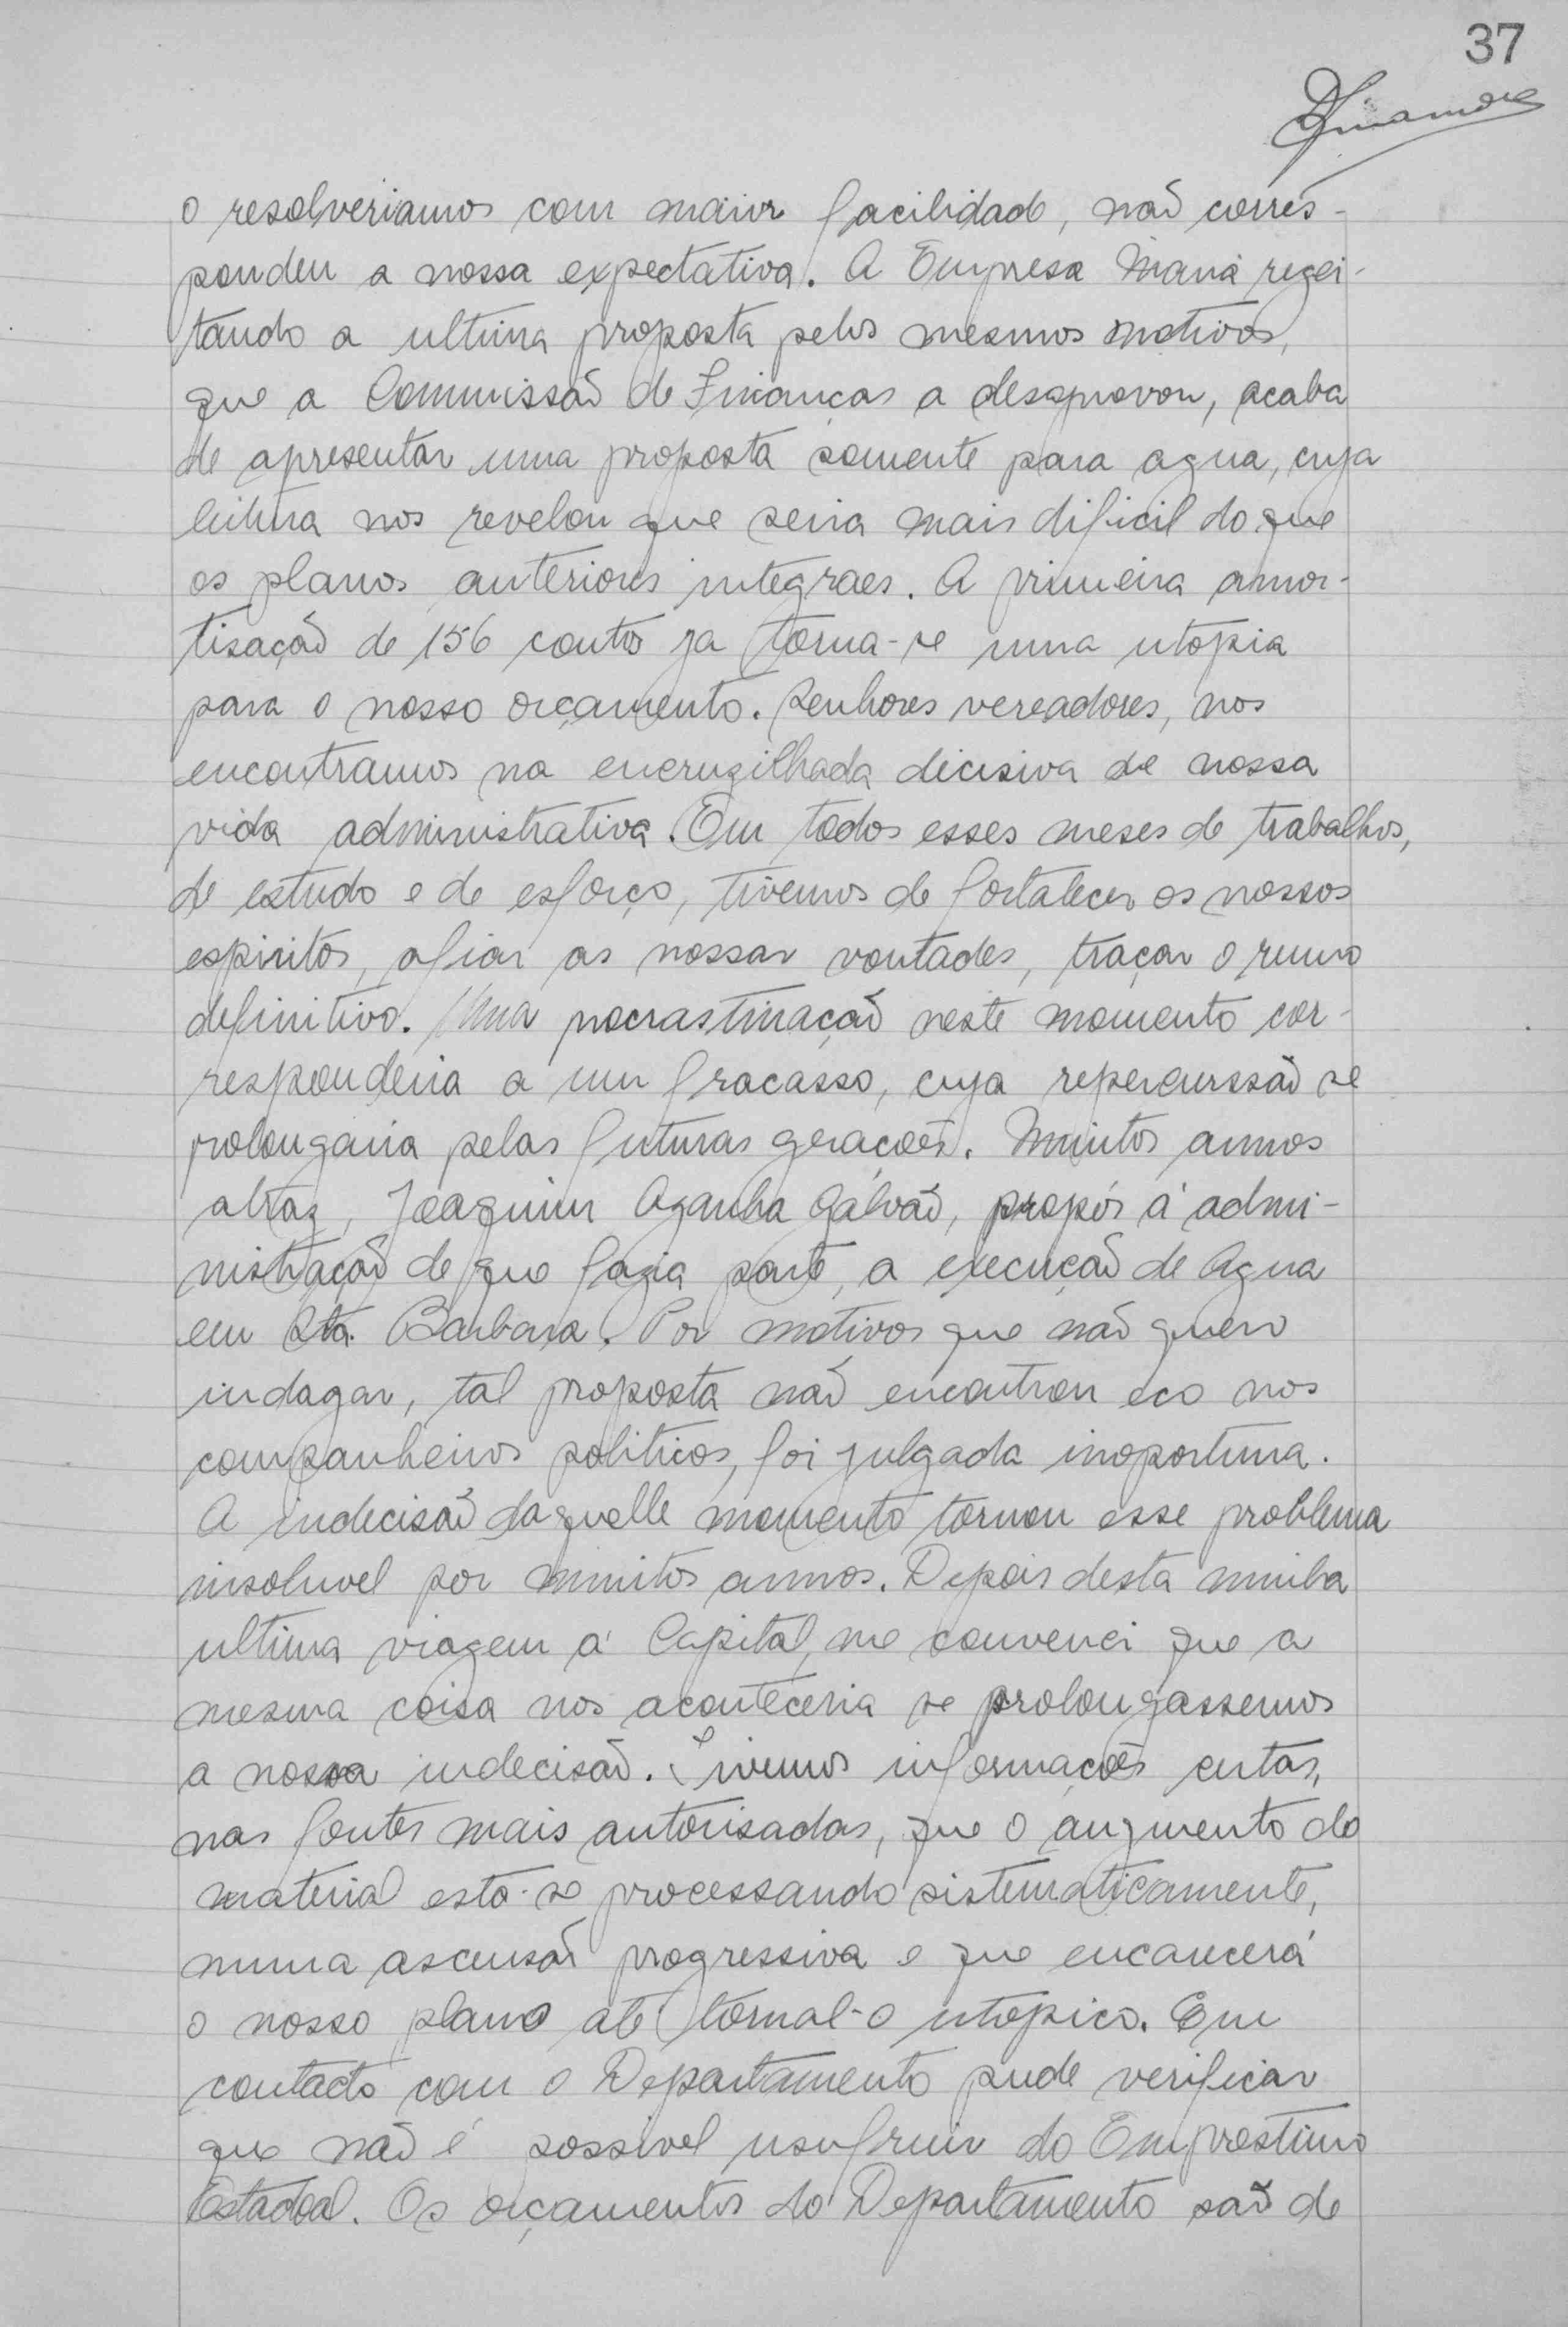 37
o resolveriamos com maior facilidade, não corres-
pondeu a nossa expectativa. A Empresa Mauá regei-
tando a ultima proposta pelos mesmos motivos,
que a Commissão de Finanças a desaprovou, acaba
de apresentar uma proposta somente para agua, cuja
leitura nos revelou que seria mais dificil do que
os planos anteriores integraes. A primeira amor-
tisação de 156 contos ja torna-se uma utopia
para o nosso orçamento. Senhores vereadores, nos
encontramos na encruzilhada decisiva de nossa
vida administrativa. Em todos esses meses de trabalhos,
de estudo e de esforço, tivemos de fortalecer os nossos
espiritos, afiar as nossas vontades, traçar o rumo
definitivo. Uma procrastinação neste momento cor-
responderia a um fracasso, cuja repercurssão se
prolongaria pelas futuras gerações. Muitos annos
atraz, Joaquim Azanha Galvão, propôs á admi-
nistração de que fazia parte, a execução de Agua
em Sta. Barbara. Por motivos que não quero
indagar, tal proposta não encontrou eco nos
companheiros politicos, foi julgada inoportuna.
A indecisão daquelle momento tornou esse problema
insoluvel por muitos annos. Depois desta minha
ultima viagem á Capital, me convenci que a
mesma coisa nos aconteceria se prolongassemos
a nossa indecisão. Tivemos informações certas,
nas fontes mais autorisadas, que o augmento do
material está-se processando sistematicamente,
numa ascensão progressiva e que encarecerá
o nosso plano até tornal-o utopico. Em
contacto com o Departamento pude verificar
que não é possivel usufruir do Emprestimo
Estadoal. Os orçamentos do Departamento são de